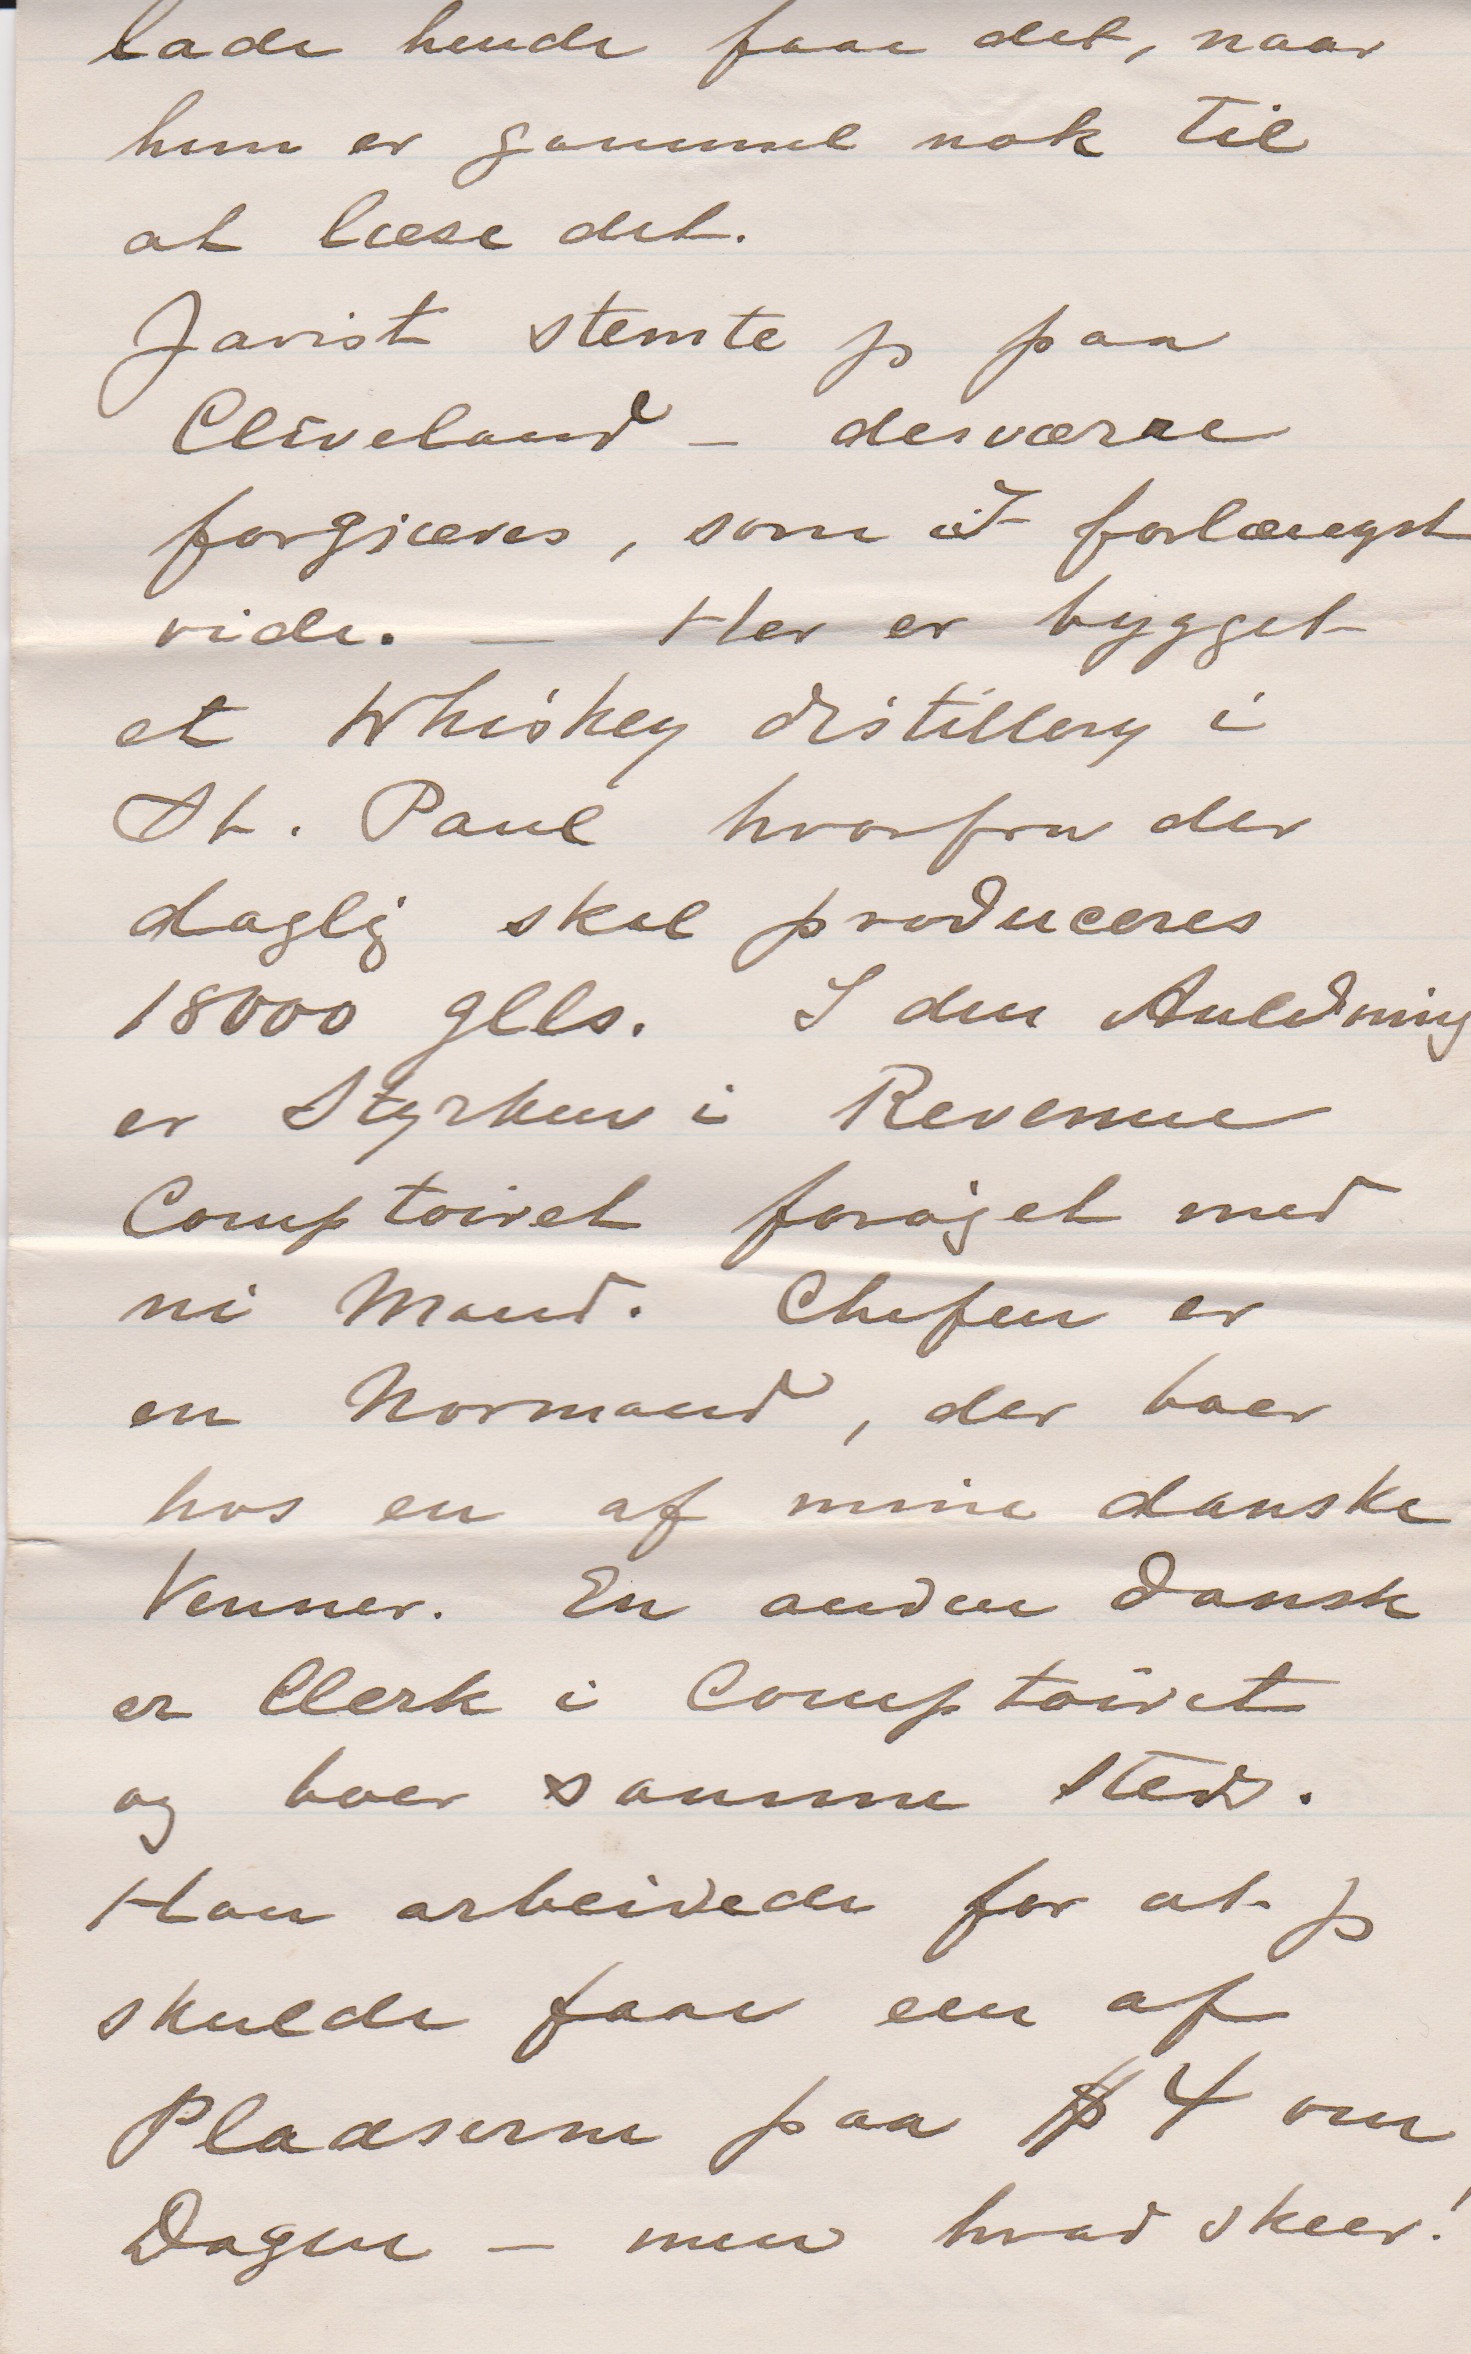 lade hende faae det, naar
hun er gammel nok til
at læse det.
Javist stemte jg paa
Cleveland – desværre
forgjæves, som I forlængst
vide. — Her er bygget
et Whiskey distillery i
St. Paul hvorfra der
daglig skal produceres
18000 glls. I den Anledning
er Styrken i Revenue
Comptoiret forøget med
ni Mand. Chefen er
en Normand, der boer
hos en af mine danske
Venner. En anden dansk
er Clerk i Comptoiret
og boer samme Sted.
Han arbeidede for at jg
skulde faae een af
Pladserne paa $4 om
Dagen – men hvad skeer!